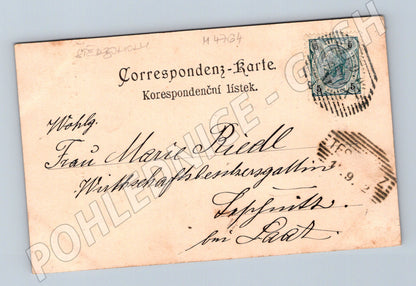 M 4734
Correspondenz-Karte.
Korespondenční lístek.
Wohlg.
Frau Marie Riedl
Wirthschaftsbesitzersgattin
bei Saaz.
POHLEDNICE - CZECH